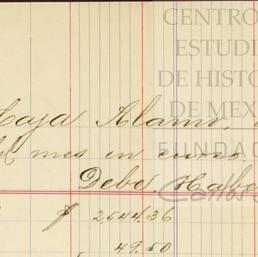 CENTRO
ESTUDI
DE HISTO
DE MEX
FUNDAC
Caja Alamo,
mes en curso.
Debe. Haber
$ 2,544.36
49.50